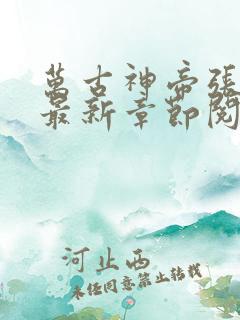 萬古神帝張
最新章節閱
河止西
未经同意禁止转载